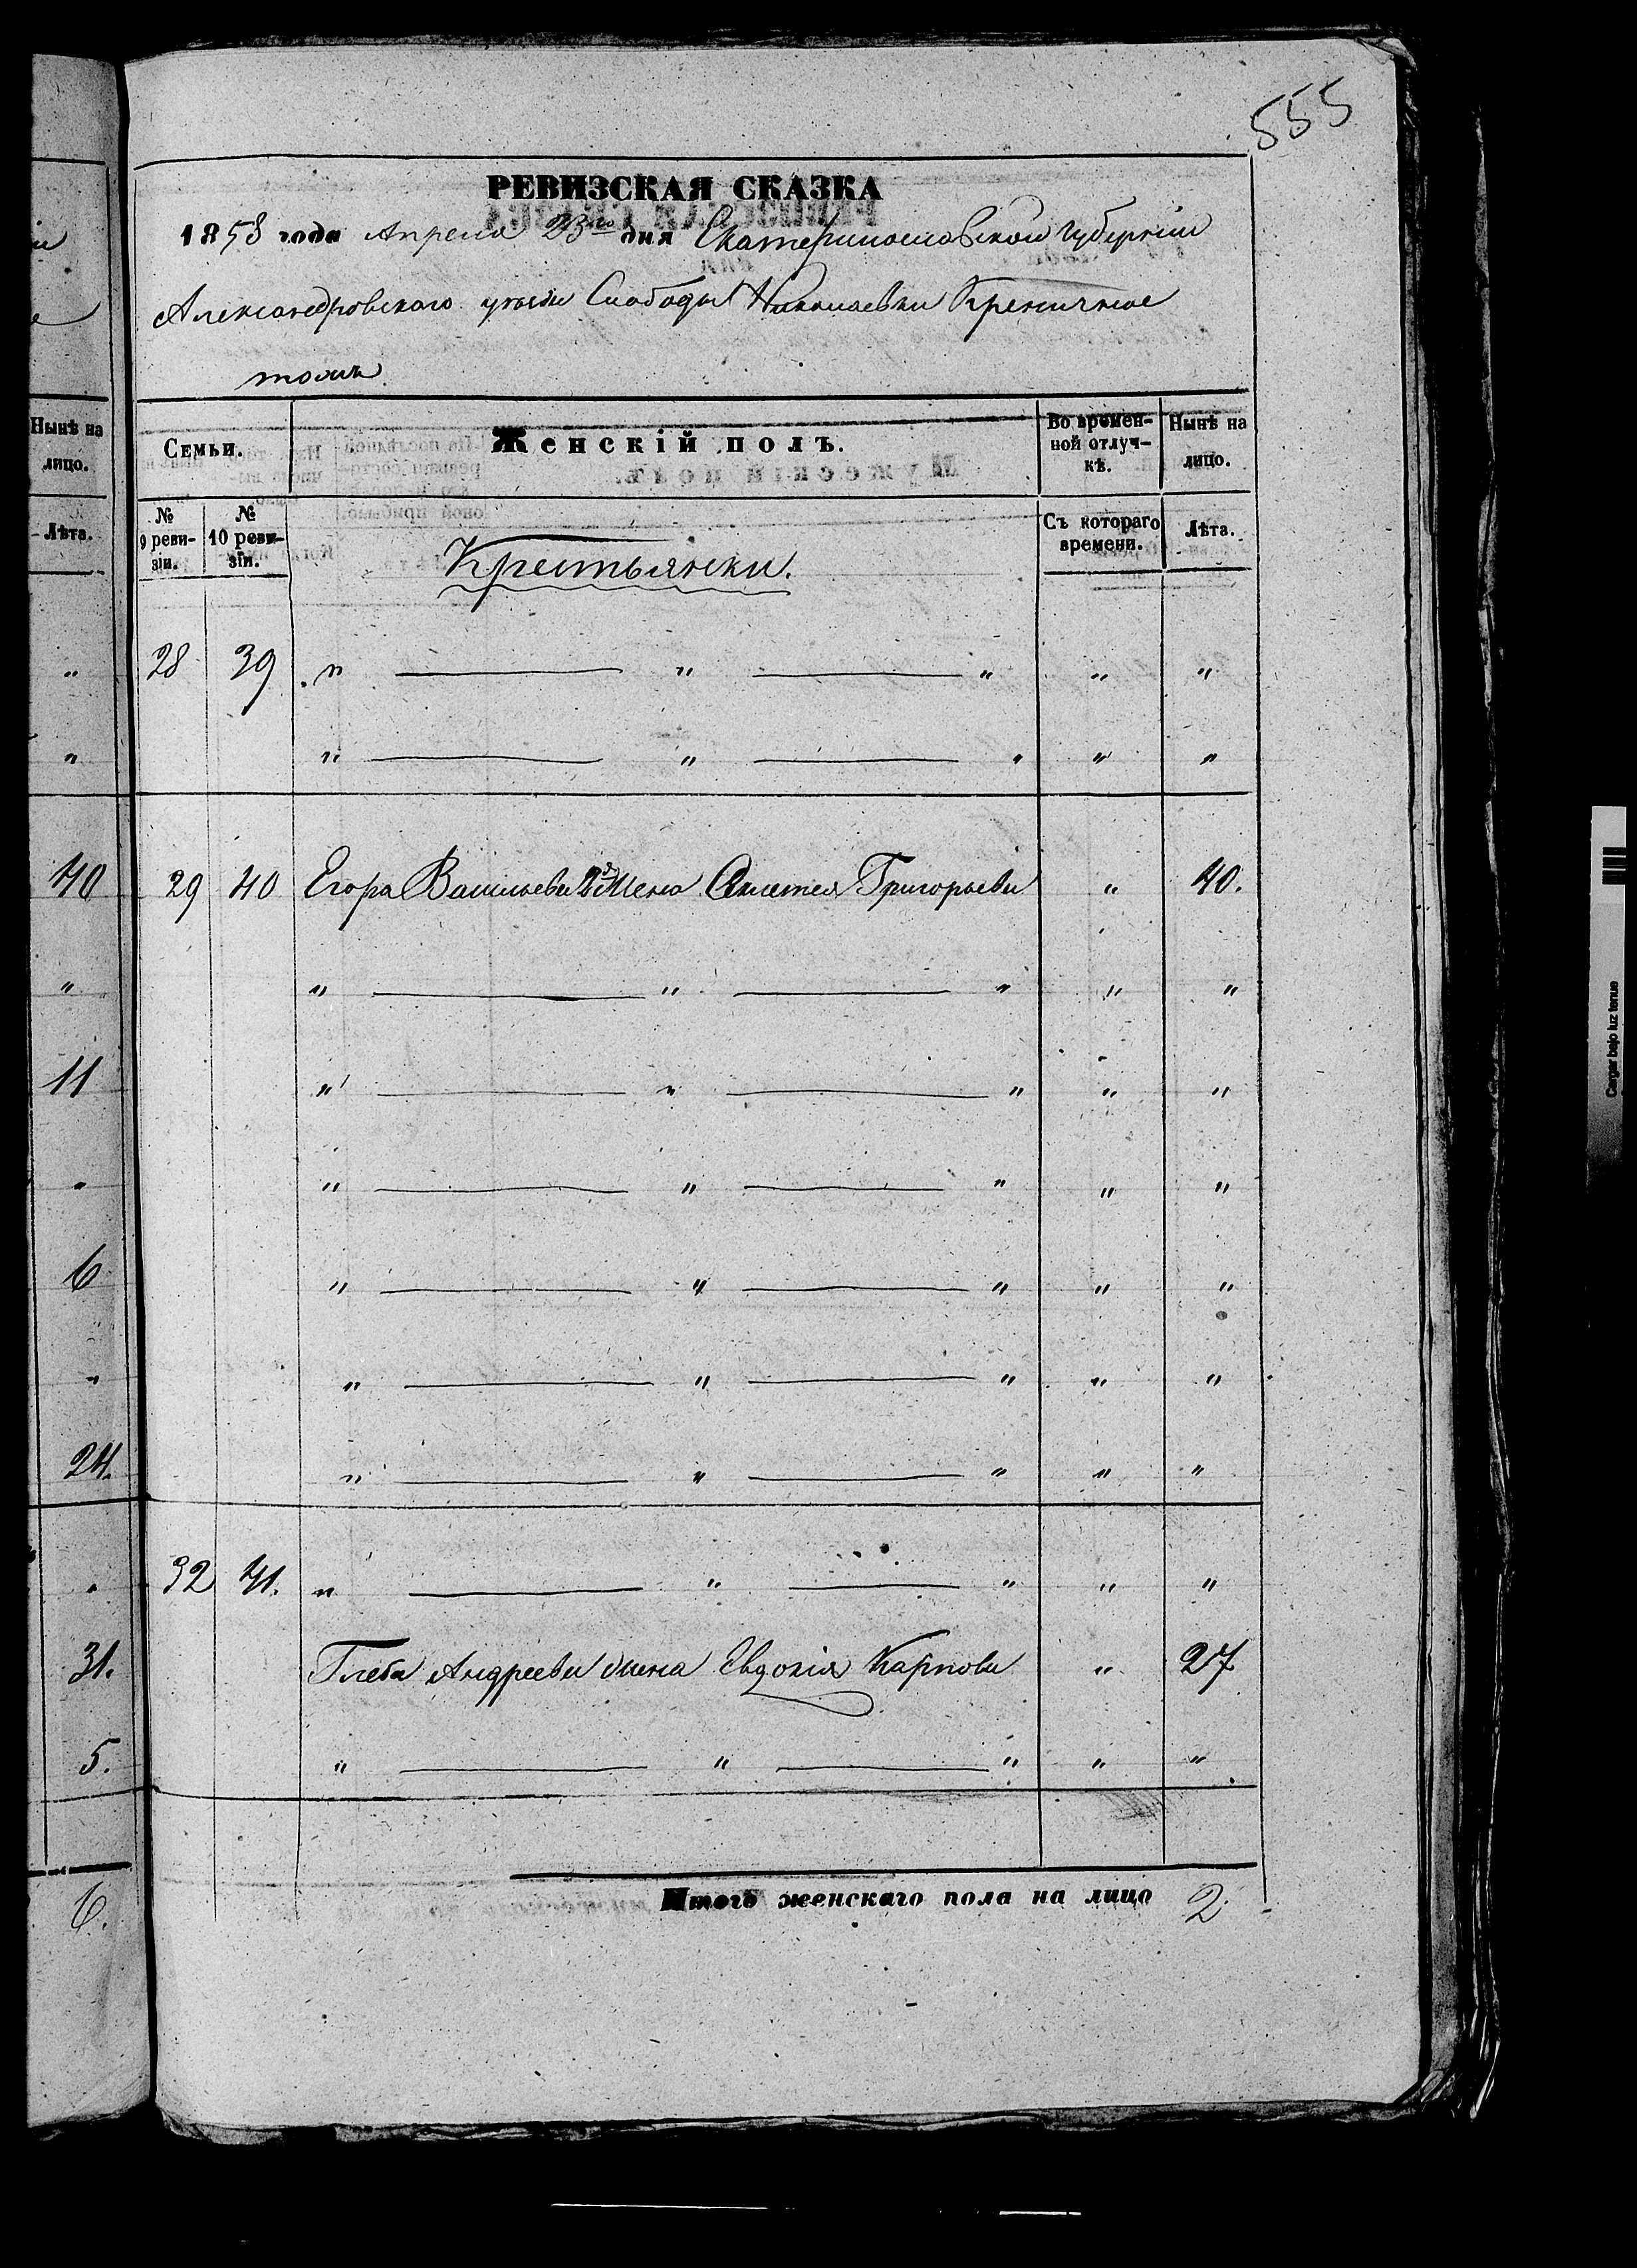 555
РЕВИЗСКАЯ СКАЗКА
1858 года Апреля 23го дня Екатеринославской губернии
Александровскаго уезда Слободы Николаевки Креничное
тожъ
Нынѣ на лицо.
Лѣта.
Семьи.
Женскій полъ.
Во времен-
ной отлуч-
кѣ.
Нынѣ на
лицо.
№
9 реви-
зіи.
№
10 реви-
зіи.
Крестьянки.
Съ котораго
времени.
Лѣта.
" 28 39 " — " — " " "
" " — " — " " "
40 29 40 Егора Васильева 2я жена Григорьева " 40.
" " — " — " " "
11 " — " — " " "
" " — " — " " "
6 " — " — " " "
" " — " — " " "
24. " — " — " " "
" 32 41. " — " — " " "
31. Глеба Андреева жена Евдокія Карпова " 27
5. " — " — " " "
6. Итого женскаго пола на лицо 2
Cargar bajo luz tenue